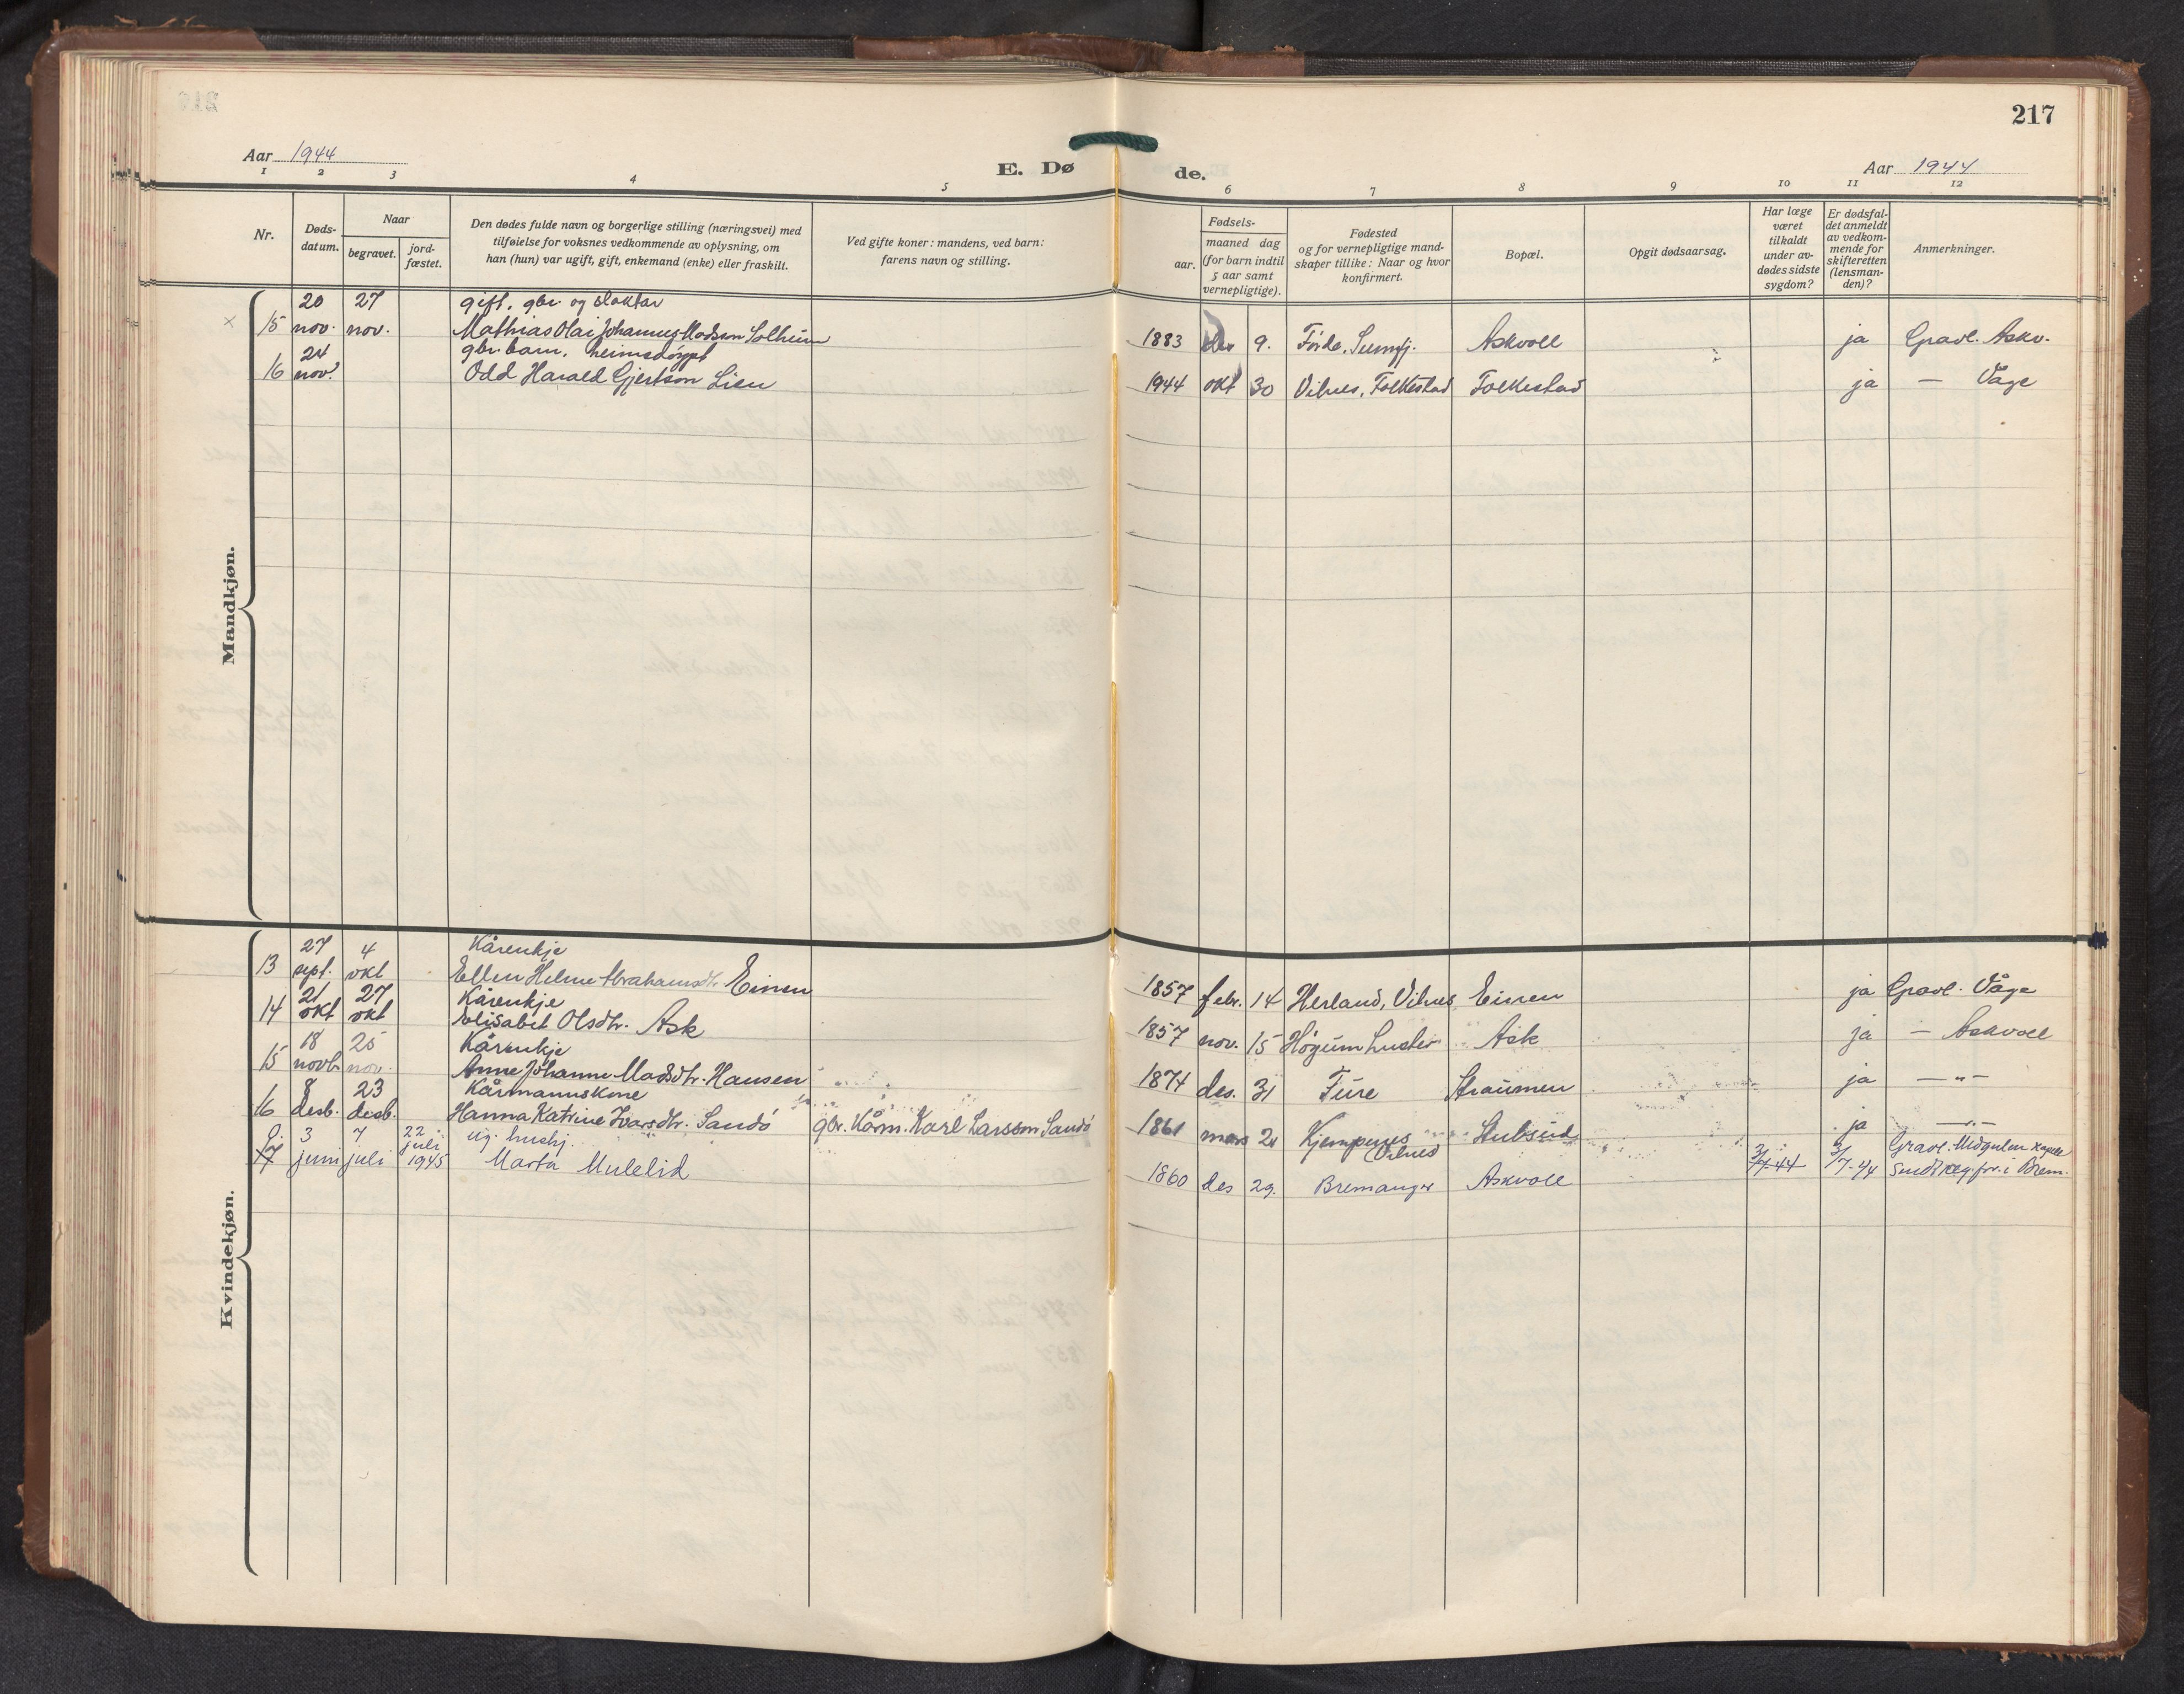 217
Aar 1944
E. Dø
de.
Aar 1944
1 2 3 4 5 6 7 8 9 10 11 12
Nr.
Døds-
datum.
Naar
begravet.
jord-
fæstet.
Den dødes fulde navn og borgerlige stilling (næringsvei) med
tilføielse for voksnes vedkommende av oplysning, om
han (hun) var ugift, gift, enkemand (enke) eller fraskilt.
Ved gifte koner: mandens, ved barn:
farens navn og stilling.
Fødsels-
aar.
maaned dag
(for barn indtil
5 aar samt
vernepligtige).
Fødested
og for vernepligtige mand-
skaper tillike: Naar og hvor
konfirmert.
Bopæl.
Opgit dødsaarsag.
Har læge
været
tilkaldt
under av-
dødes sidste
sygdom?
Er dødsfal-
det anmeldt
av vedkom-
mende for
skifteretten
(lensman-
den)?
Anmerkninger.
Mandkjøn.
20 27 gift. gbr. og slaktar
15 nov. nov. Mathias Olai Johannes Madsen Solheim 1883 9. Førde, Sunnfj. Askvoll ja Gravl. Askv.
24 gbr. barn. heimedøypt
16 nov. Odd Harald Gjertson Lien 1944 okt 30 Vilnes, Folkestad Folkestad ja — Våge
Kvindekjøn.
27 4 Kårenkje
13 sept. okt Ellen Helene Abrahamsdtr. Einen 1857 febr. 14 Herland, Vilnes Einen ja Gravl. Våge
21 27 Kårenkje
14 okt okt Elisabet Olsdtr. Ask 1857 nov. 15 Høgum Luster Ask ja — Askvoll
18 25 Kårenkje
15 novb. nov. Anne Johanne Madsdtr. Hansen 1874 des. 31 Fure Straumen ja — " —
8 23 Kårmannskone
16 desb. desb. Hanna Katrine Ivarsdtr. Sandø gbr. Kårm. Karl Larsson Sandø 1861 mars 21 Kjempenes Vilnes Stubseid ja — " —
3 7 22 juli ug. hushj.
17 juni juli 1945 Marta Mulelid 1860 des 29. Bremanger Askvoll 3/7-44 3/7-44 Gravl. Midgulen kapell
Sendt reg. for. i Brem.